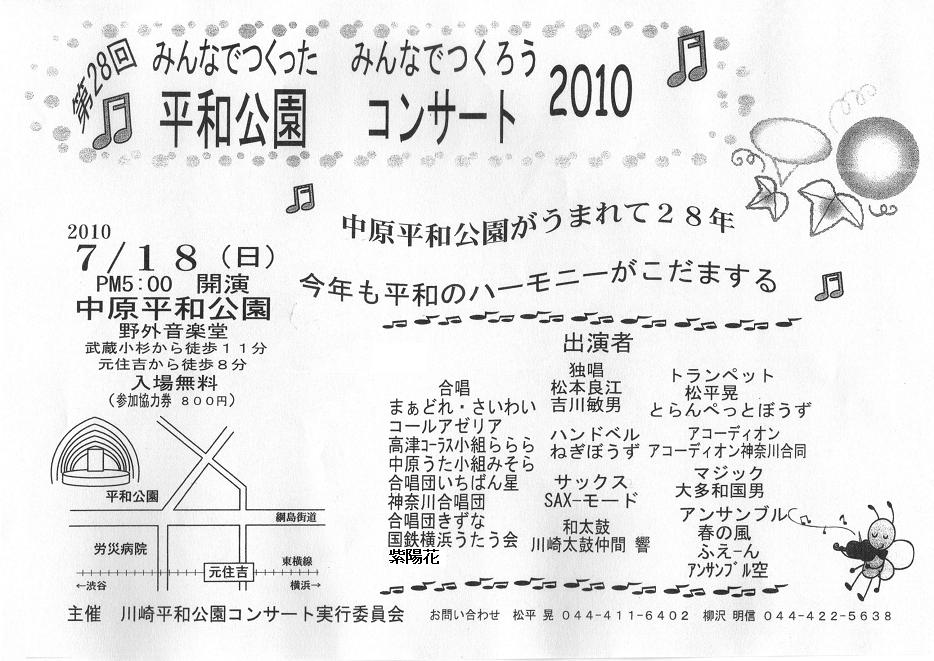 第28回
みんなでつくった　みんなでつくろう
平和公園　コンサート　2010
中原平和公園がうまれて２８年
今年も平和のハーモニーがこだまする
2010
７/１８（日）
PM5:00　開演
中原平和公園
野外音楽堂
武蔵小杉から徒歩１１分
元住吉から徒歩８分
入場無料
（参加協力券 ８００円）
出演者
合唱
まぁどれ・さいわい
コールアゼリア
高津ｺｰﾗｽ小組ららら
中原うた小組みそら
合唱団いちばん星
神奈川合唱団
合唱団きずな
国鉄横浜うたう会
紫陽花
独唱
松本良江
吉川敏男
ハンドベル
ねぎぼうず
サックス
SAX-モード
和太鼓
川崎太鼓仲間 響
トランペット
松平晃
とらんぺっとぼうず
アコーディオン
アコーディオン神奈川合同
マジック
大多和国男
アンサンブル
春の風
ふえーん
ｱﾝｻﾝﾌﾞﾙ空
平和公園
綱島街道
労災病院
東横線
元住吉
←渋谷
横浜→
主催　川崎平和公園コンサート実行委員会　お問い合わせ　松平 晃 ０４４-４１１-６４０２　柳沢 明信 ０４４-４２２-５６３８